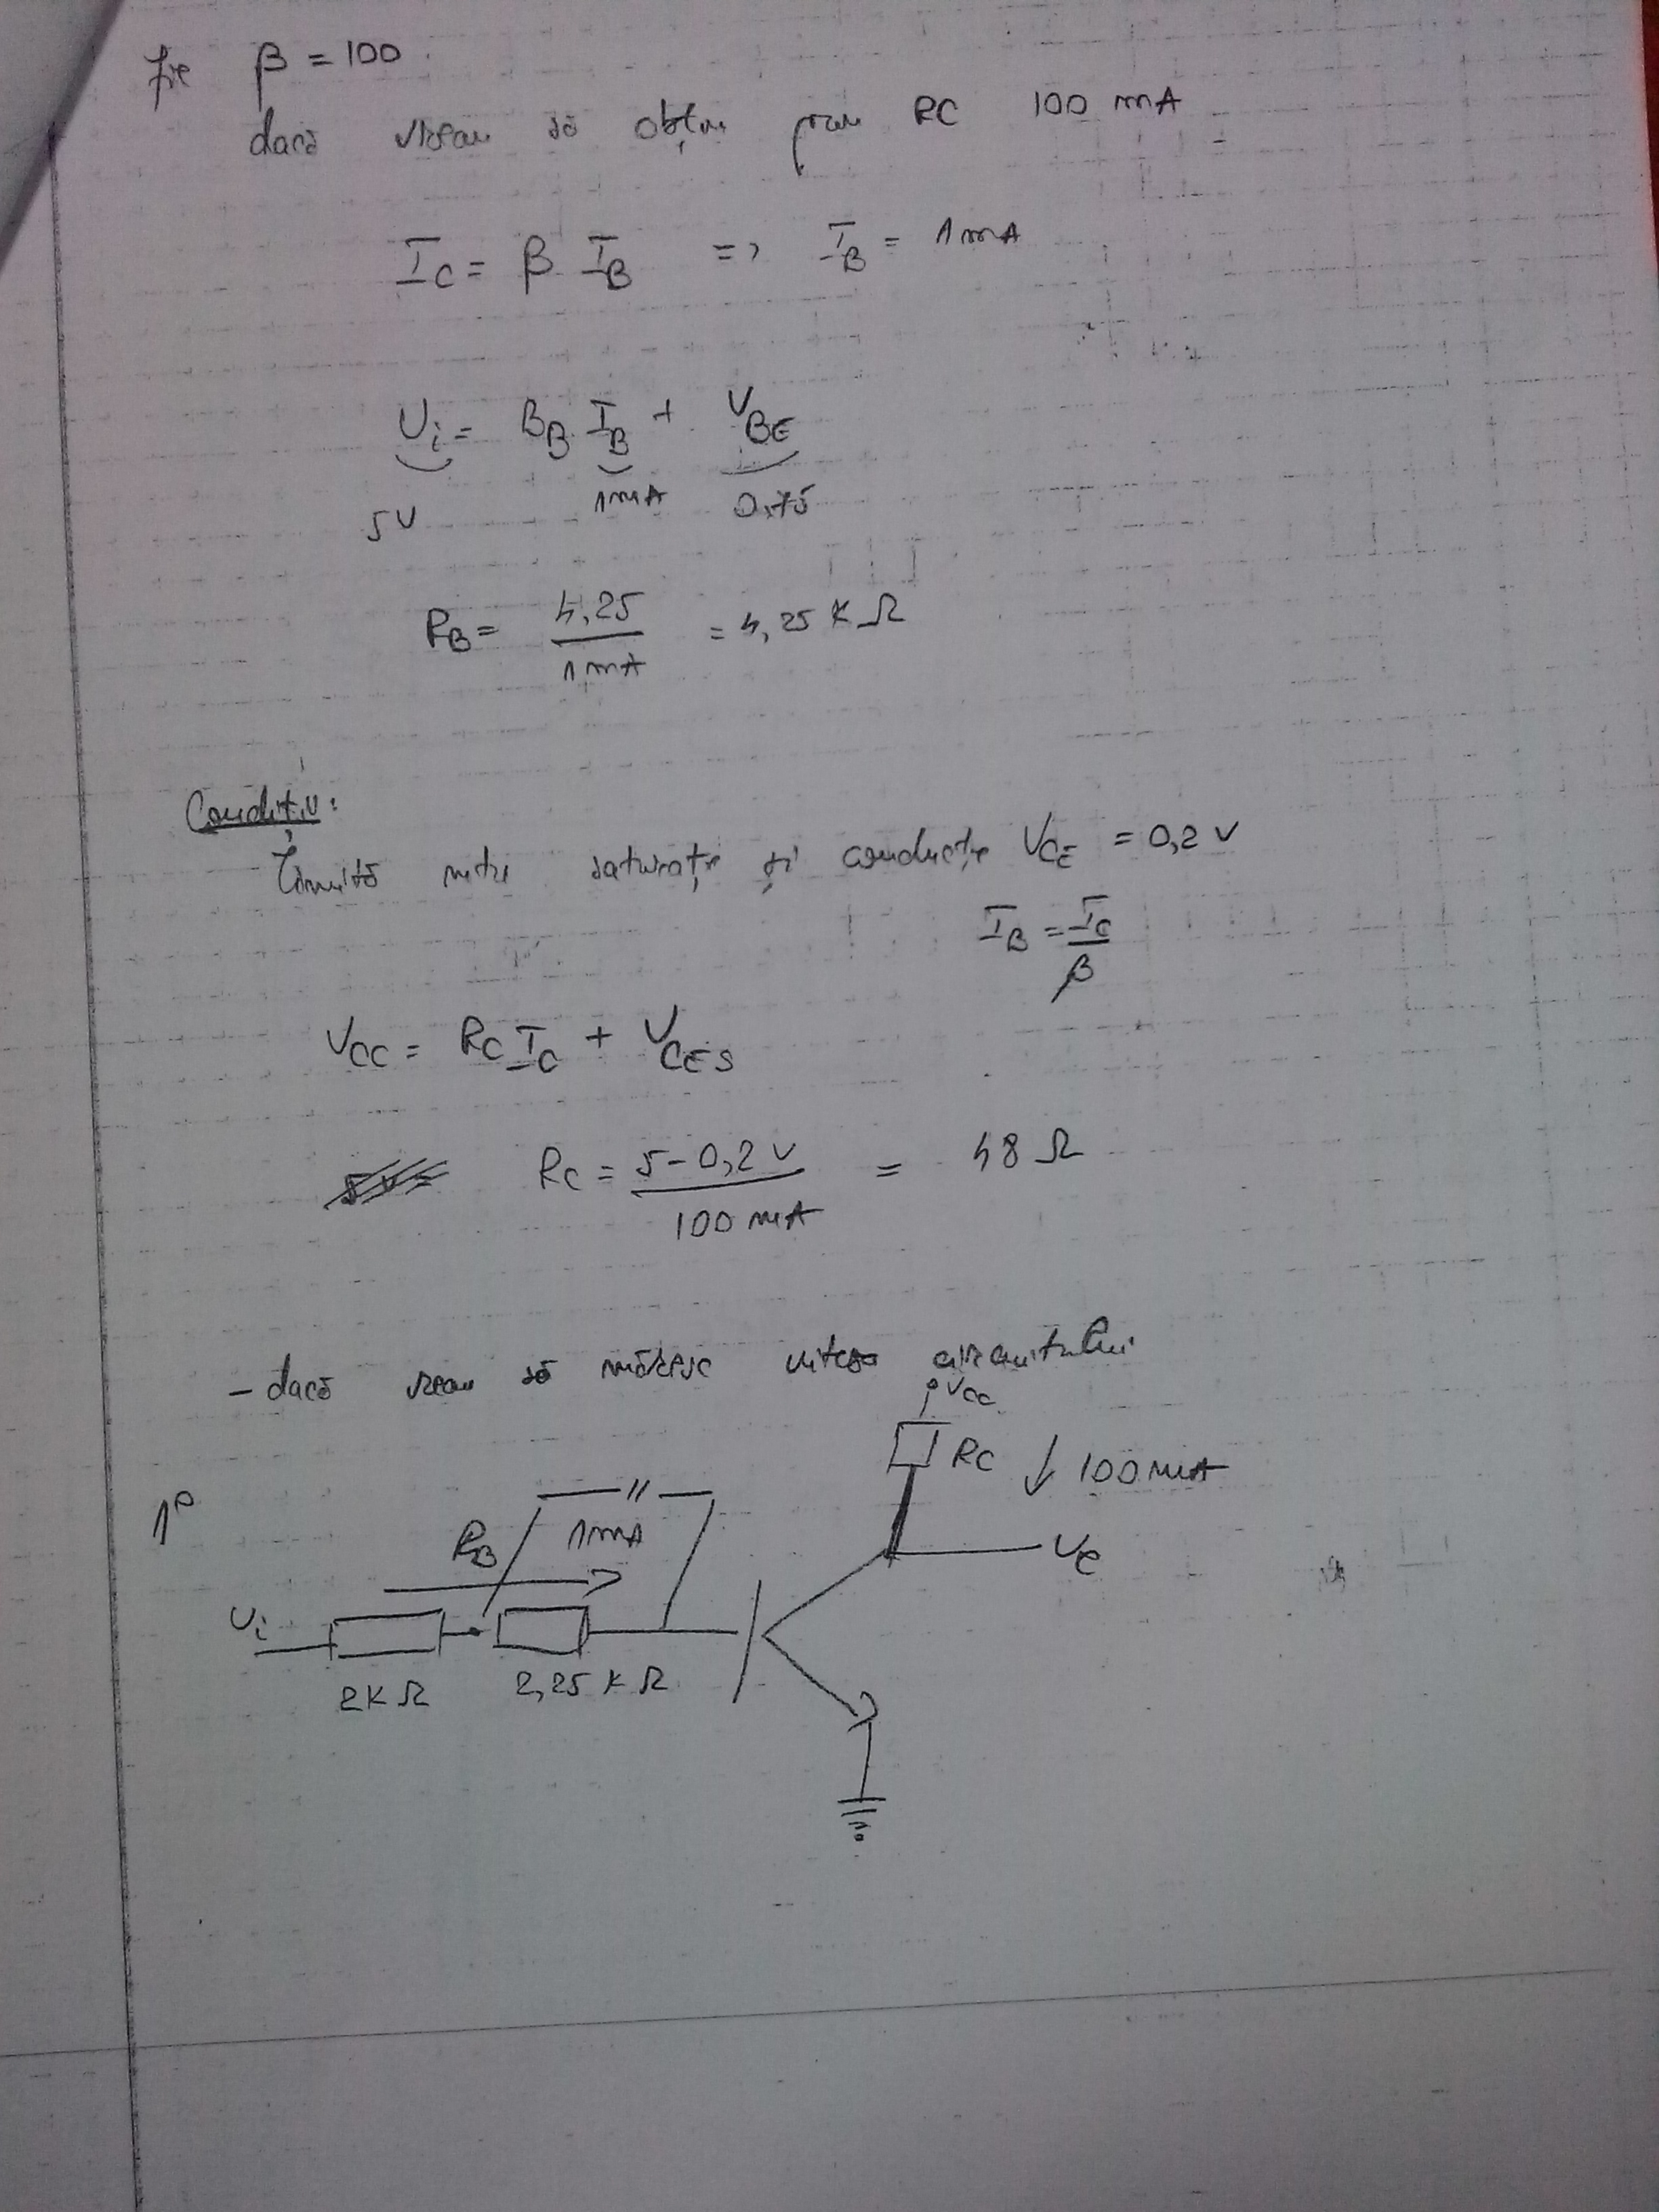 fie β = 100
dacă vreau să obțin prin RC 100 mA
IC = β IB => IB = 1mA
Ui = BB IB + VBE
5V 1mA 0,75
RB = 4,25 / 1mA = 4,25 KΩ
Condiții:
Limită între saturație și conducție VCE = 0,2 V
IB = IC / β
VCC = RC IC + VCES
RC = 5-0,2 V / 100 mA = 48 Ω
- dacă vreau să măresc viteza circuitului
VCC
RC 100 mA
1°
RB 1mA
Ue
Ui
2KΩ 2,25 KΩ